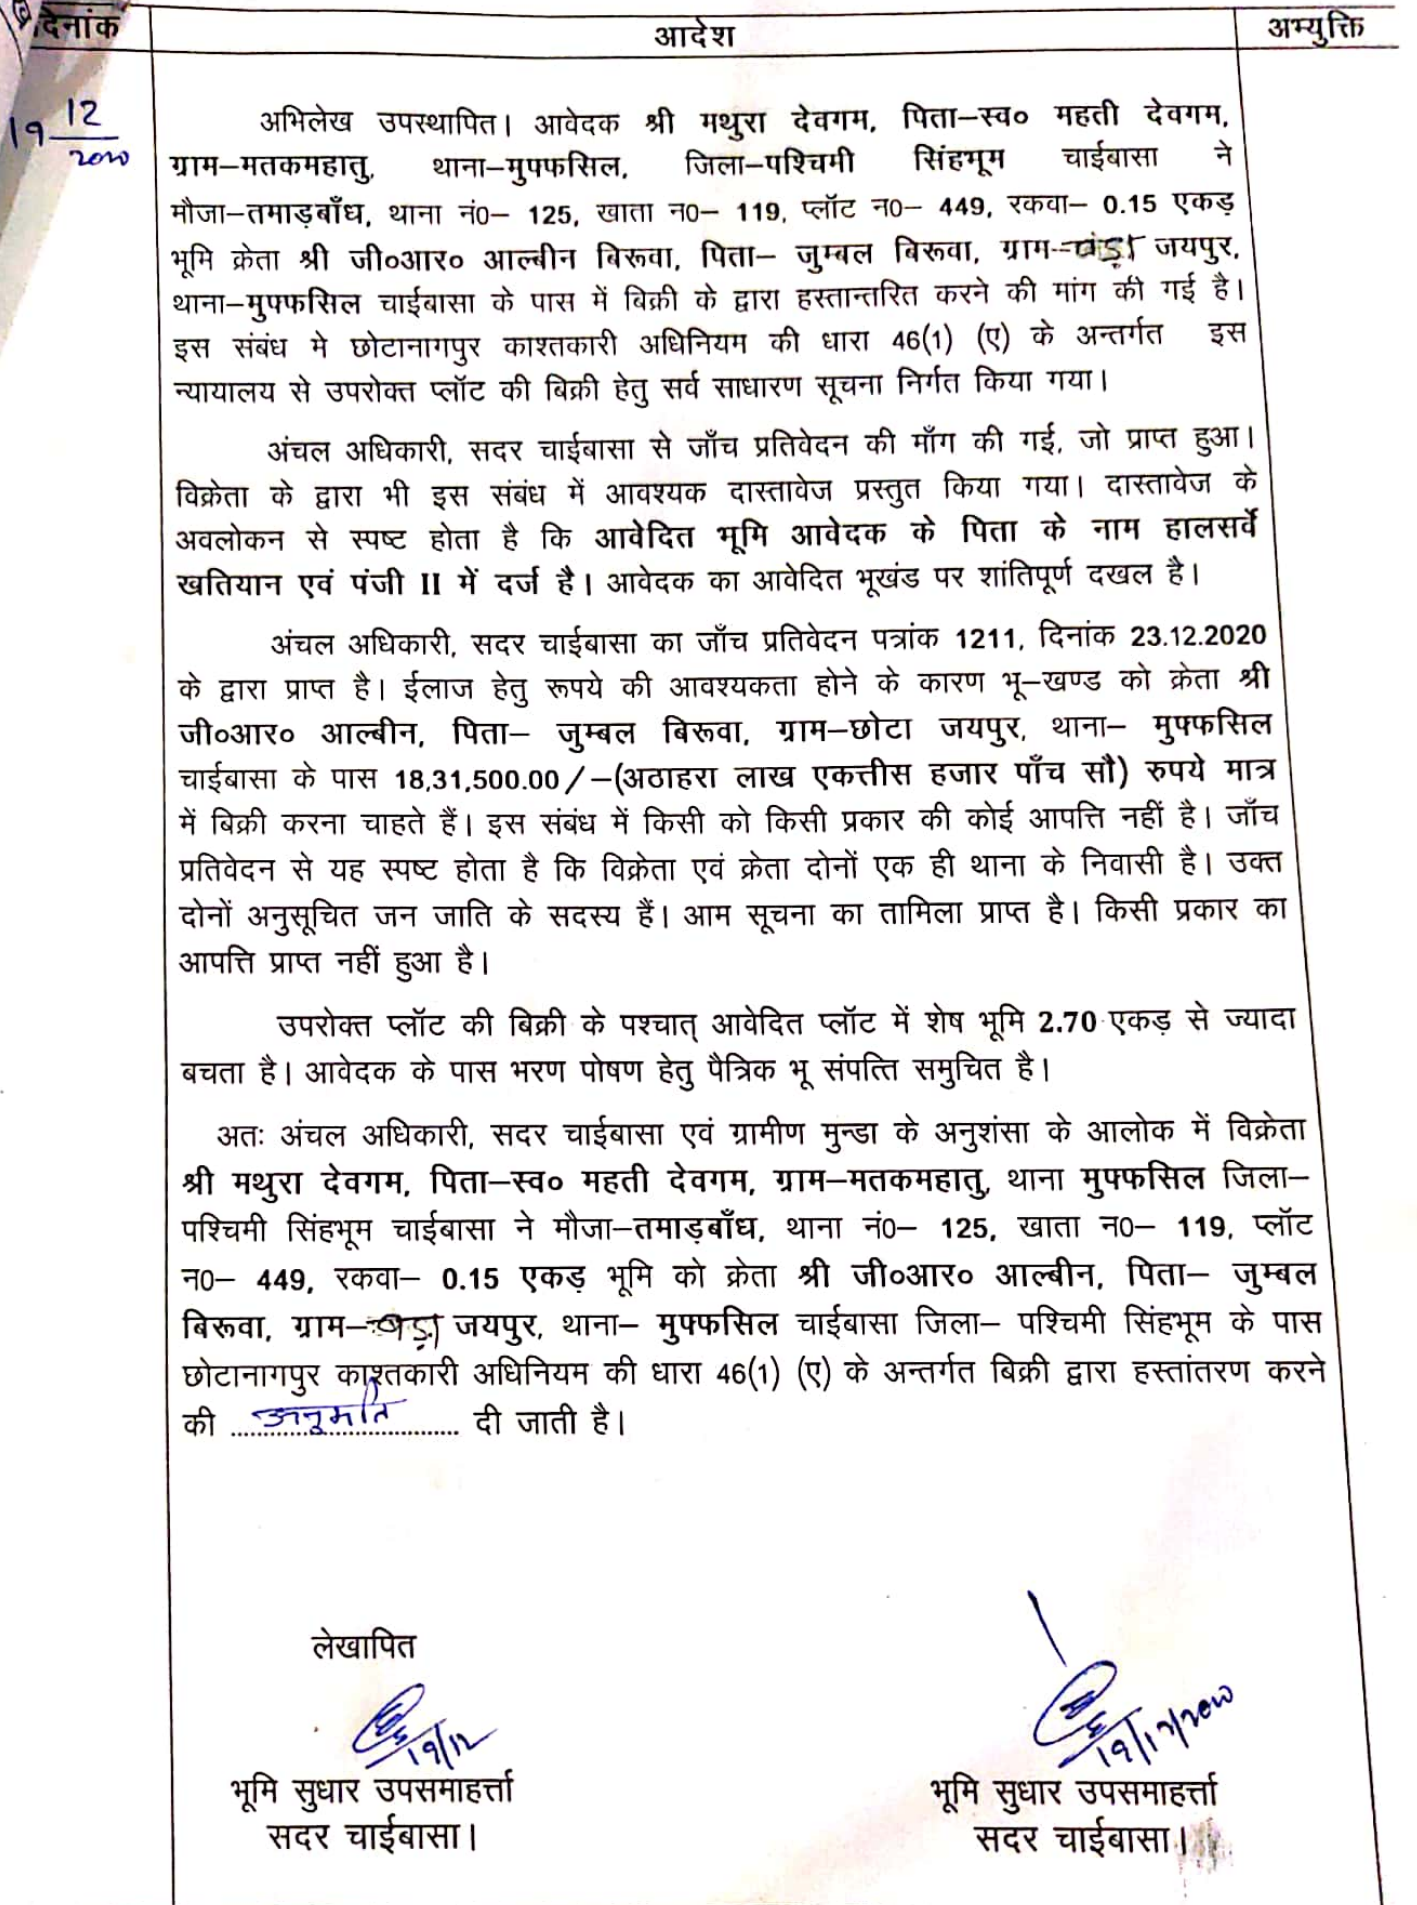 दिनांक आदेश अभ्युक्ति
19 12/2020
अभिलेख उपस्थापित। आवेदक श्री मथुरा देवगम, पिता–स्व० महती देवगम,
ग्राम–मतकमहातु, थाना–मुफ्फसिल, जिला–पश्चिमी सिंहभूम चाईबासा ने
मौजा–तमाड़बाँध, थाना नं0– 125, खाता न0– 119, प्लॉट न0– 449, रकवा– 0.15 एकड़
भूमि क्रेता श्री जी०आर० आल्बीन बिरूवा, पिता– जुम्बल बिरूवा, ग्राम– जयपुर,
थाना–मुफ्फसिल चाईबासा के पास में बिक्री के द्वारा हस्तान्तरित करने की मांग की गई है।
इस संबंध मे छोटानागपुर काश्तकारी अधिनियम की धारा 46(1) (ए) के अन्तर्गत इस
न्यायालय से उपरोक्त प्लॉट की बिक्री हेतु सर्व साधारण सूचना निर्गत किया गया।
अंचल अधिकारी, सदर चाईबासा से जाँच प्रतिवेदन की माँग की गई, जो प्राप्त हुआ।
विक्रेता के द्वारा भी इस संबंध में आवश्यक दास्तावेज प्रस्तुत किया गया। दास्तावेज के
अवलोकन से स्पष्ट होता है कि आवेदित भूमि आवेदक के पिता के नाम हालसर्वे
खतियान एवं पंजी II में दर्ज है। आवेदक का आवेदित भूखंड पर शांतिपूर्ण दखल है।
अंचल अधिकारी, सदर चाईबासा का जाँच प्रतिवेदन पत्रांक 1211, दिनांक 23.12.2020
के द्वारा प्राप्त है। ईलाज हेतु रूपये की आवश्यकता होने के कारण भू–खण्ड को क्रेता श्री
जी०आर० आल्बीन, पिता– जुम्बल बिरूवा, ग्राम–छोटा जयपुर, थाना– मुफ्फसिल
चाईबासा के पास 18,31,500.00/–(अठाहरा लाख एकत्तीस हजार पाँच सौ) रुपये मात्र
में बिक्री करना चाहते हैं। इस संबंध में किसी को किसी प्रकार की कोई आपत्ति नहीं है। जाँच
प्रतिवेदन से यह स्पष्ट होता है कि विक्रेता एवं क्रेता दोनों एक ही थाना के निवासी है। उक्त
दोनों अनुसूचित जन जाति के सदस्य हैं। आम सूचना का तामिला प्राप्त है। किसी प्रकार का
आपत्ति प्राप्त नहीं हुआ है।
उपरोक्त प्लॉट की बिक्री के पश्चात् आवेदित प्लॉट में शेष भूमि 2.70 एकड़ से ज्यादा
बचता है। आवेदक के पास भरण पोषण हेतु पैत्रिक भू संपत्ति समुचित है।
अतः अंचल अधिकारी, सदर चाईबासा एवं ग्रामीण मुन्डा के अनुशंसा के आलोक में विक्रेता
श्री मथुरा देवगम, पिता–स्व० महती देवगम, ग्राम–मतकमहातु, थाना मुफ्फसिल जिला–
पश्चिमी सिंहभूम चाईबासा ने मौजा–तमाड़बाँध, थाना नं0– 125, खाता न0– 119, प्लॉट
न0– 449, रकवा– 0.15 एकड़ भूमि को क्रेता श्री जी०आर० आल्बीन, पिता– जुम्बल
बिरूवा, ग्राम– जयपुर, थाना– मुफ्फसिल चाईबासा जिला– पश्चिमी सिंहभूम के पास
छोटानागपुर काश्तकारी अधिनियम की धारा 46(1) (ए) के अन्तर्गत बिक्री द्वारा हस्तांतरण करने
की ....अनुमति.... दी जाती है।
लेखापित
19/12 19/12/2020
भूमि सुधार उपसमाहर्त्ता भूमि सुधार उपसमाहर्त्ता
सदर चाईबासा। सदर चाईबासा।